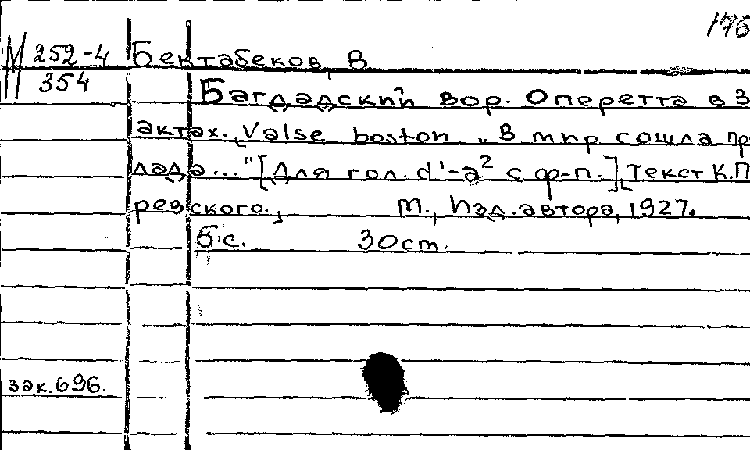 176
М 252-4 Бектабеков, В
354
Багдадский вор. Оперетта в 3
актах. Valse boston „В мир сошла пр
лада..." [Для гол. d¹-a² с ф-п.] Текст К.П
ревского.,  М., Изд. автора, 1927.
5 с.  30 см.
зак. 696.